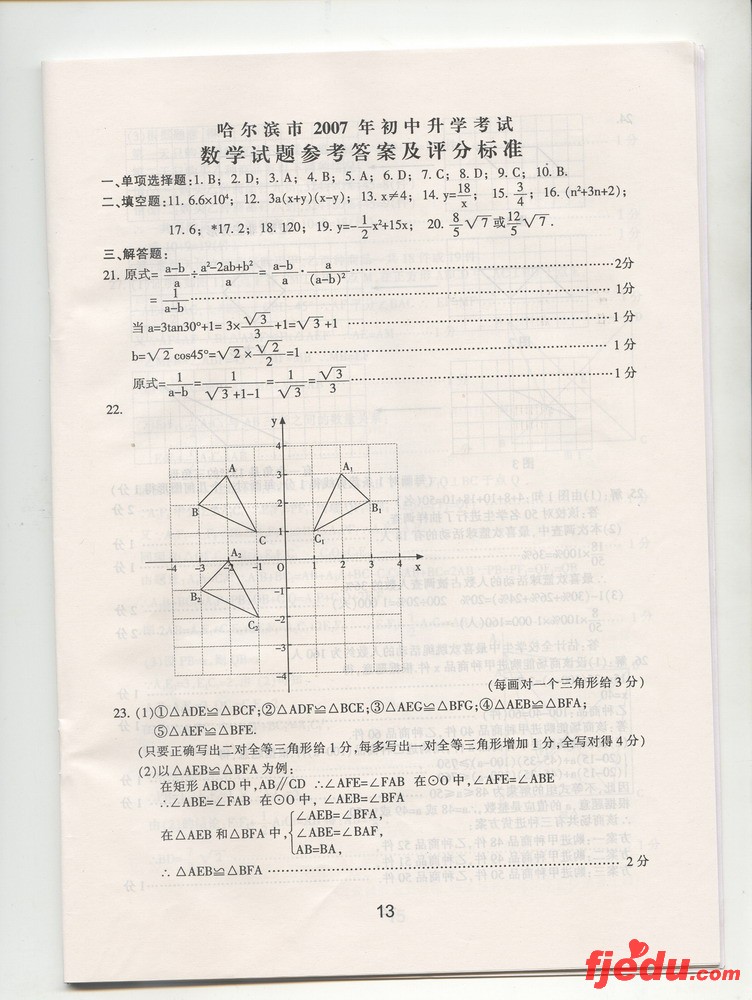 哈尔滨市 2007 年初中升学考试
数学试题参考答案及评分标准
一、单项选择题:1. B; 2. D; 3. A; 4. B; 5. A; 6. D; 7. C; 8. D; 9. C; 10. B.
二、填空题:11. 6.6×10⁴; 12. 3a(x+y)(x-y); 13. x≠4; 14. y=18/x; 15. 3/4; 16. (n²+3n+2);
17. 6; *17. 2; 18. 120; 19. y=-1/2x²+15x; 20. 8/5√7 或12/5√7.
三、解答题:
21. 原式=a-b/a÷a²-2ab+b²/a=a-b/a·a/(a-b)²……2分
=1/a-b……1分
当 a=3tan30°+1= 3×√3/3+1=√3+1……1分
b=√2cos45°=√2×√2/2=1……1分
原式=1/a-b=1/√3+1-1=1/√3=√3/3……1分
22.
y
4
A 3 A₁
B 2 B₁
C 1 C₁
-4 -3 -2 -1 0 1 2 3 4 x
A₂
B₂ -1
C₂ -2
-3
-4
(每画对一个三角形给 3 分)
23. (1)①△ADE≌△BCF;②△ADF≌△BCE;③△AEG≌△BFG;④△AEB≌△BFA;
⑤△AEF≌△BFE.
(只要正确写出二对全等三角形给 1 分,每多写出一对全等三角形增加 1 分,全写对得 4 分)
(2)以△AEB≌△BFA 为例:
在矩形 ABCD 中,AB∥CD ∴∠AFE=∠FAB 在⊙O 中,∠AFE=∠ABE
∴∠ABE=∠FAB 在⊙O 中, ∠AEB=∠BFA
∠AEB=∠BFA,
在△AEB 和△BFA 中,∠ABE=∠BAF,
AB=BA,
∴ △AEB≌△BFA……2 分
13
fjedu.com